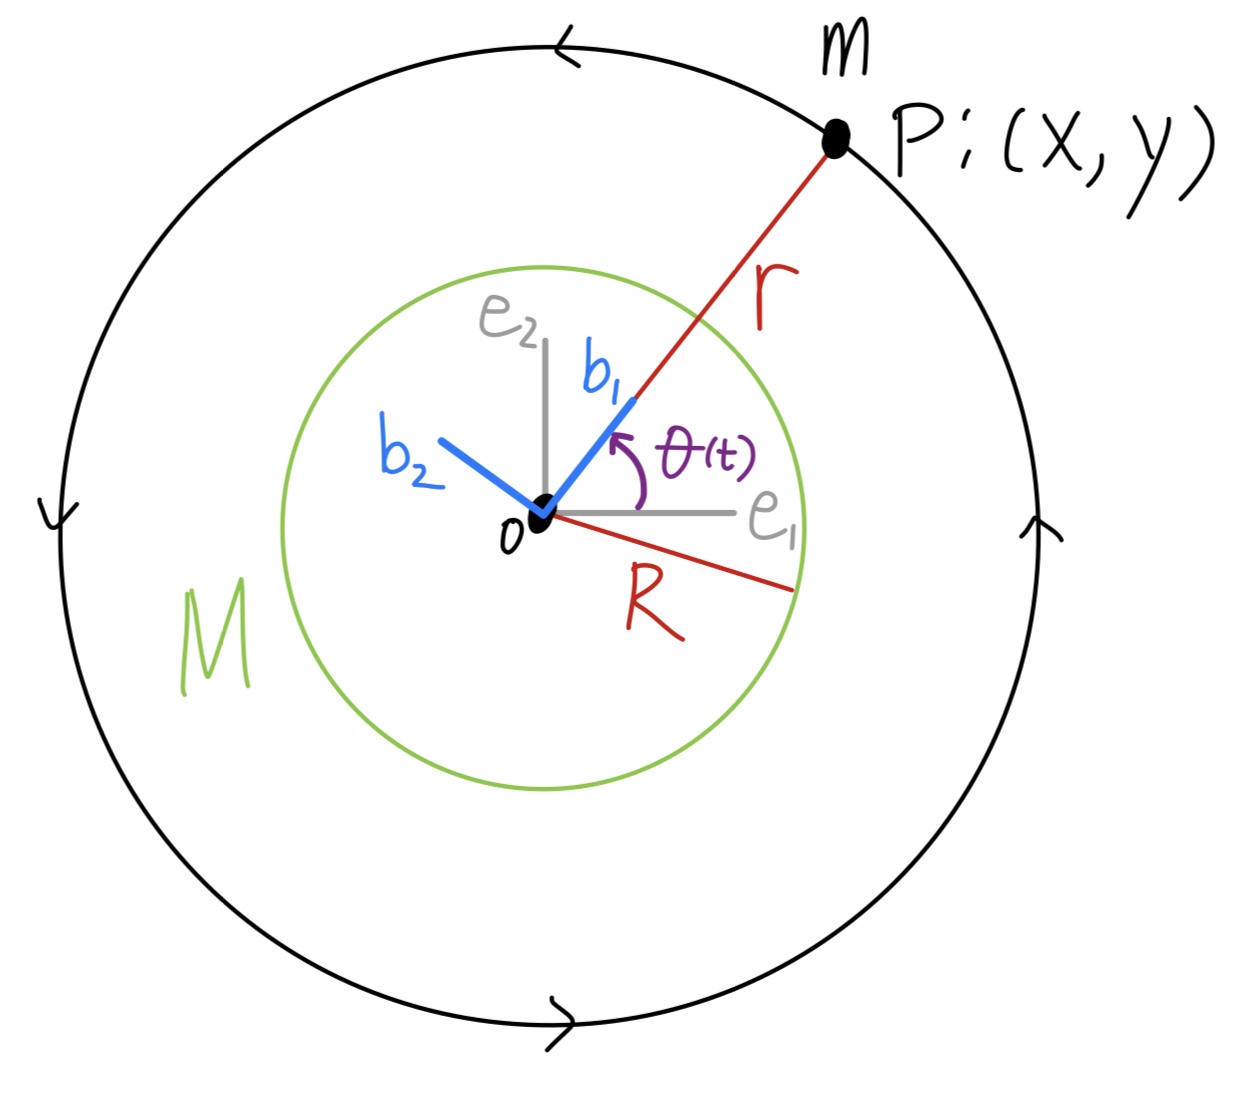 m
P: (x, y)
r
e₂
b₁
b₂
θ(t)
e₁
O
R
M